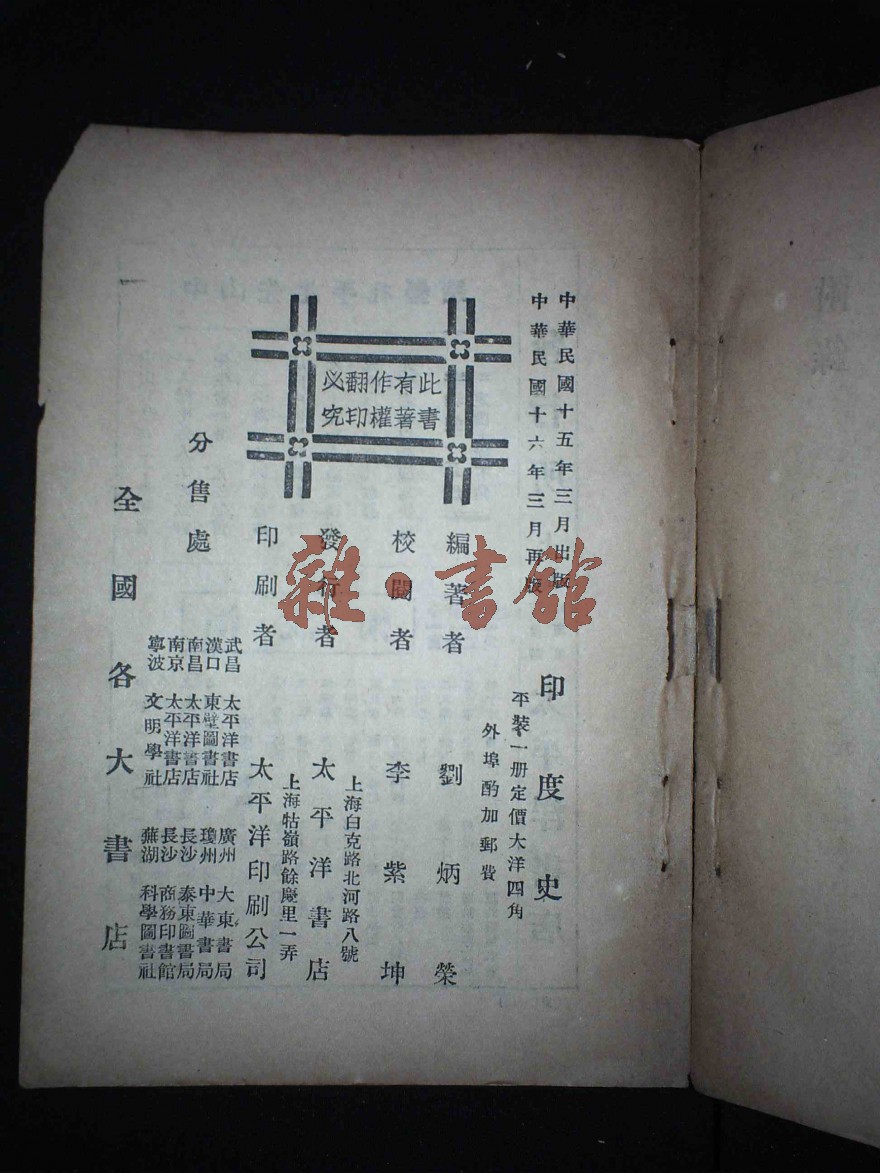 中華民國十五年三月出版
中華民國十六年三月再版
印度史
平裝一册定價大洋四角
外埠酌加郵費
此書有著作權翻印必究
編著者 劉炳榮
校閱者 李紫坤
上海白克路北河路八號
發行者 太平洋書店
上海牯嶺路餘慶里一弄
印刷者 太平洋印刷公司
分售處
武昌 太平洋書店 廣州 大東書局
漢口 東壁圖書社 瓊州 中華書局
南昌 太平洋書店 長沙 泰東圖書局
南京 太平洋書店 長沙 商務印書館
寧波 文明學社 蕪湖 科學圖書社
全國各大書店
雜·書館